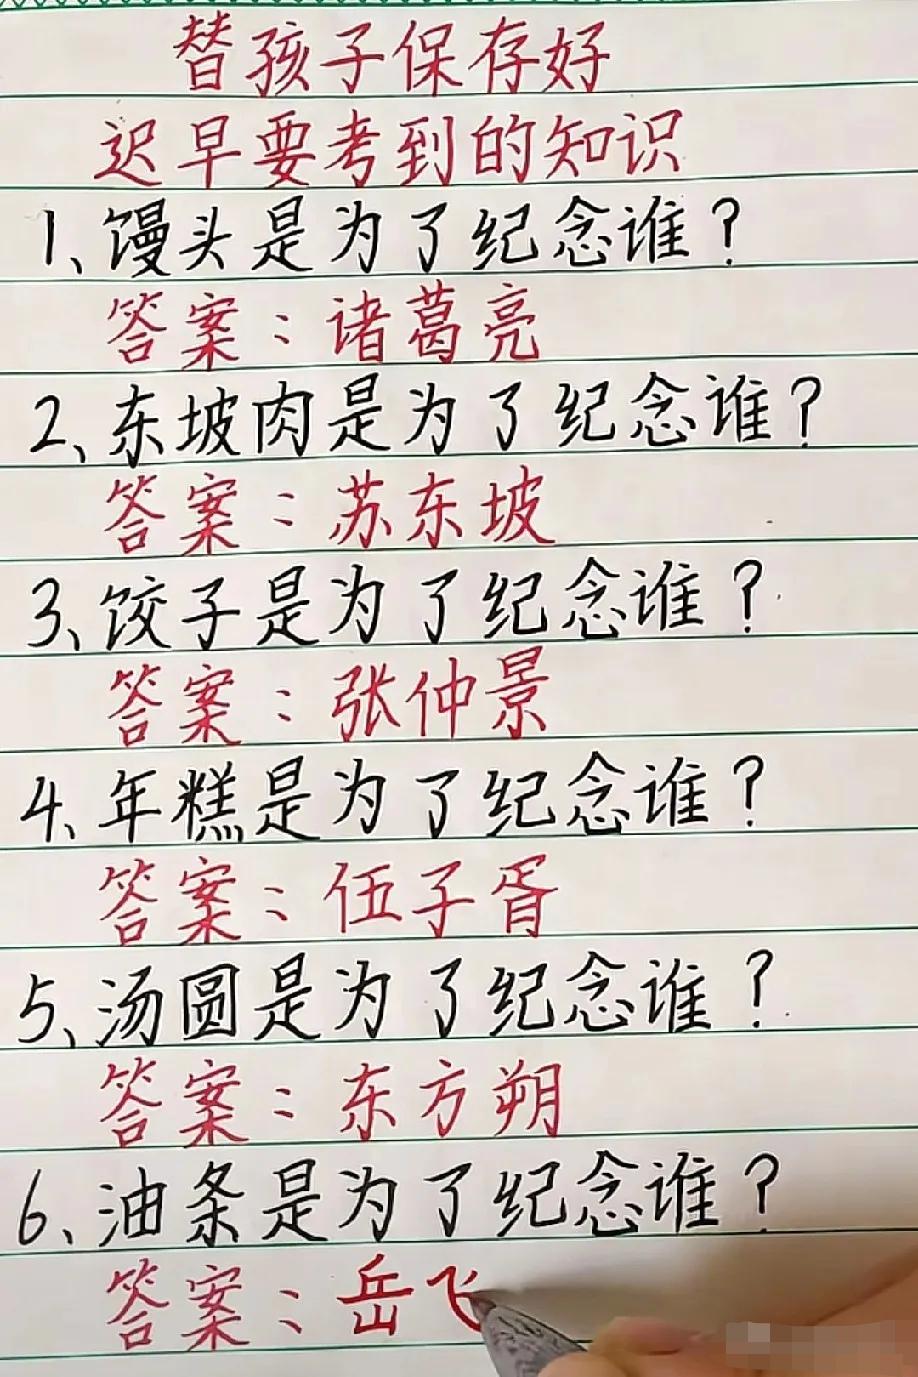 替孩子保存好
迟早要考到的知识
1、馒头是为了纪念谁？
答案：诸葛亮
2、东坡肉是为了纪念谁？
答案：苏东坡
3、饺子是为了纪念谁？
答案：张仲景
4、年糕是为了纪念谁？
答案：伍子胥
5、汤圆是为了纪念谁？
答案：东方朔
6、油条是为了纪念谁？
答案：岳飞